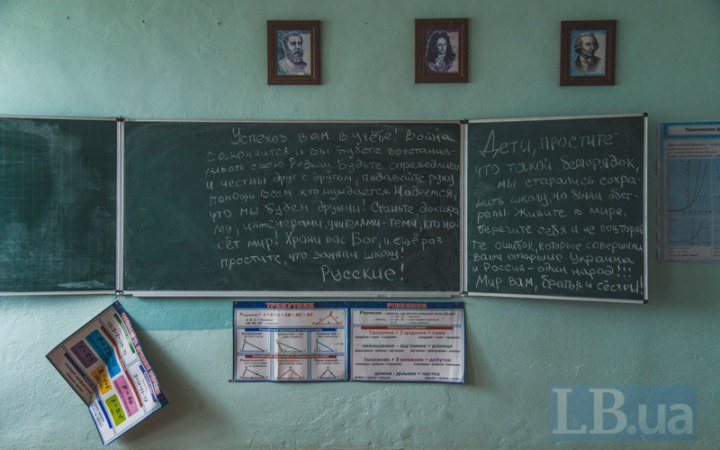 Успехов вам в учёбе! Война
закончится и вы будете восстанав-
ливать свою Родину. Будьте справедливы
и честны друг с другом, подавайте руку
помощи всем кто нуждается. Надеемся,
что мы будем дружны! Станьте доктора-
ми, инженерами, учителями-теми, кто не-
сёт мир! Храни вас Бог, и ещё раз
простите, что заняли школу!
Русские!
Дети, простите
что такой беспорядок,
мы старались сохра-
нить школу, но были обст-
релы. Живите в мире,
берегите себя и не повторяй
те ошибок, которые совершили
ваши старшие. Украина
и Россия-один народ!!!
Мир вам, братья и сёстры!
ТРИКУТНИК
РІВНЯННЯ
1 доданок + 2 доданок = сума
зменшуване - від'ємник = різниця
1 множник × 2 множник = добуток
ділене : дільник = частка
LB.ua